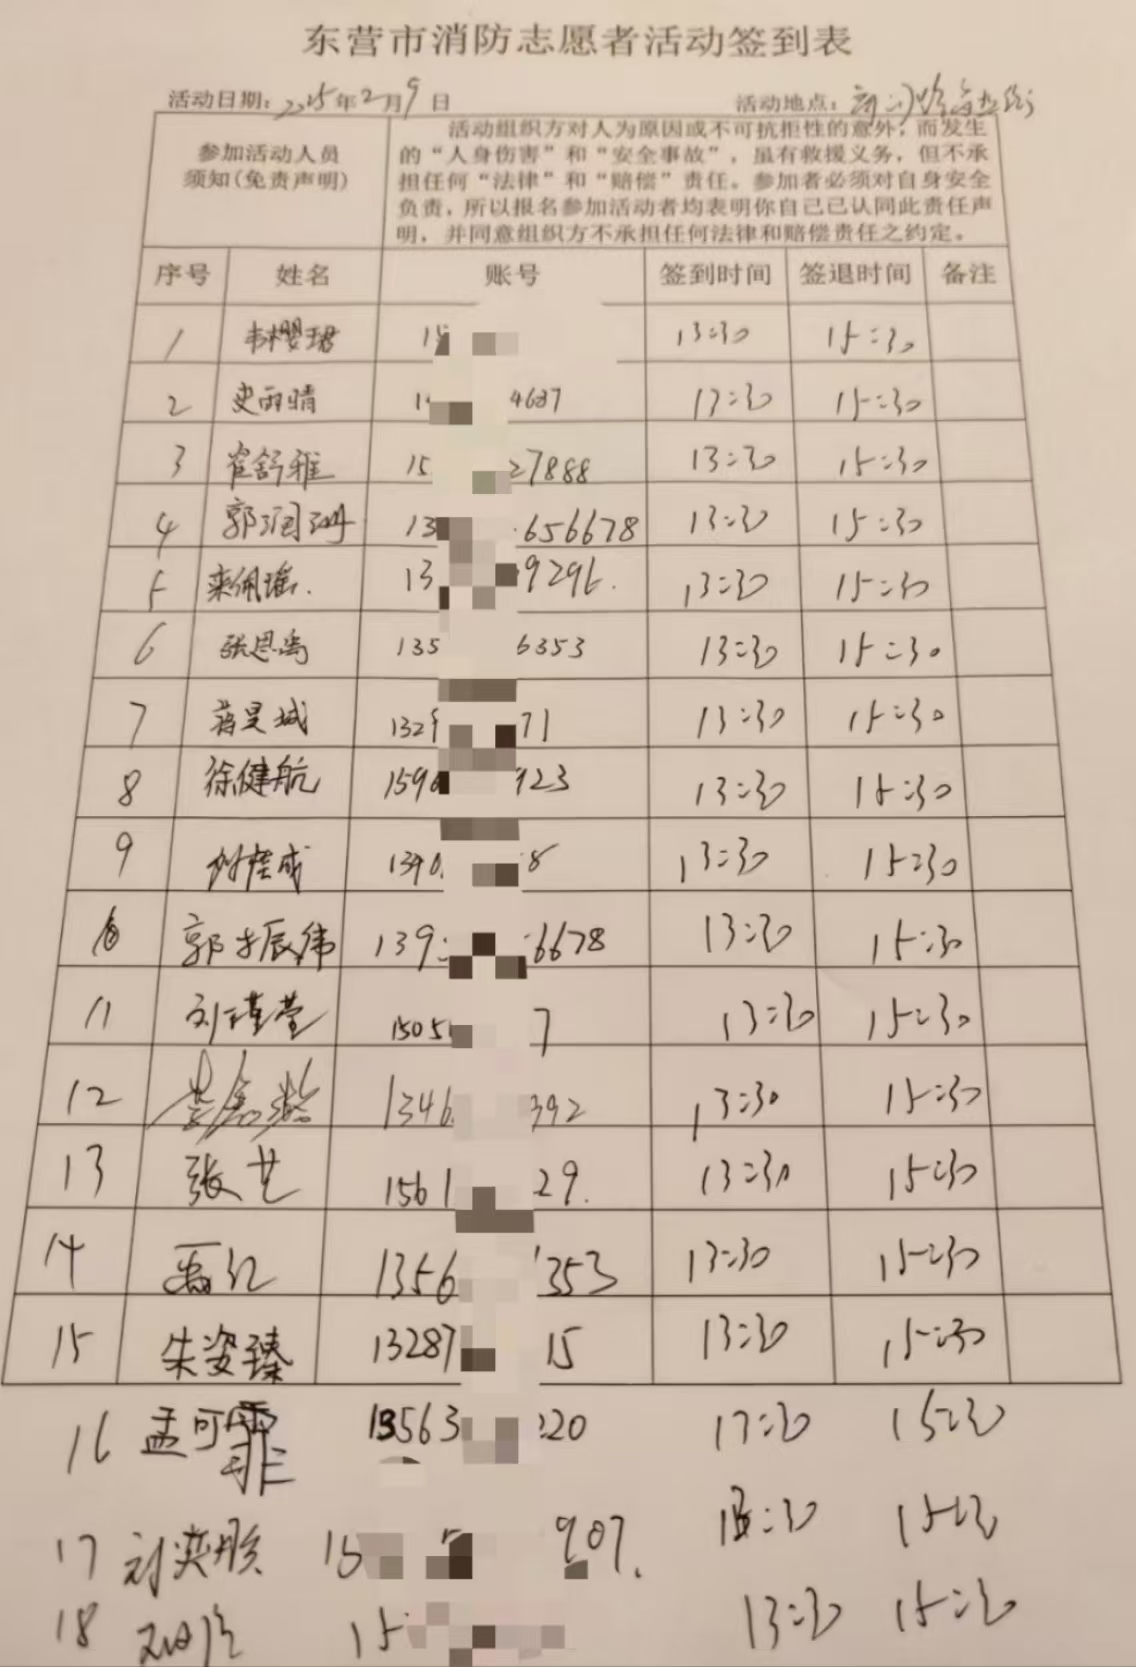 东营市消防志愿者活动签到表
活动日期：2025年2月9日 活动地点：
参加活动人员
须知(免责声明)
活动组织方对人为原因或不可抗拒性的意外，而发生
的“人身伤害”和“安全事故”，虽有救援义务，但不承
担任何“法律”和“赔偿”责任。参加者必须对自身安全
负责，所以报名参加活动者均表明你自己已认同此责任声
明，并同意组织方不承担任何法律和赔偿责任之约定。
序号 姓名 账号 签到时间 签退时间 备注
1 韦樱珺 13:30 15:30
2 史雨晴 4687 13:30 15:30
3 崔舒雅 15 27888 13:30 15:30
4 郭润珊 13 656678 13:30 15:30
5 栾佩瑶. 13 9296. 13:30 15:30
6 张恩禹 135 6353 13:30 15:30
7 蒋昊城 132 71 13:30 15:30
8 徐健航 159 923 13:30 15:30
9 成 1390 8 13:30 15:30
10 郭振伟 139 6678 13:30 15:30
11 刘瑾莹 1505 7 13:30 15:30
12 1346 392 13:30 15:30
13 张艺 1561 29. 13:30 15:30
14 禹红 1356 353 13:30 15:30
15 朱姿臻 13287 15 13:30 15:30
16 孟可霏 13563 220 13:30 15:30
17 刘奕彤 15 907. 13:30 15:30
18 15 13:30 15:30